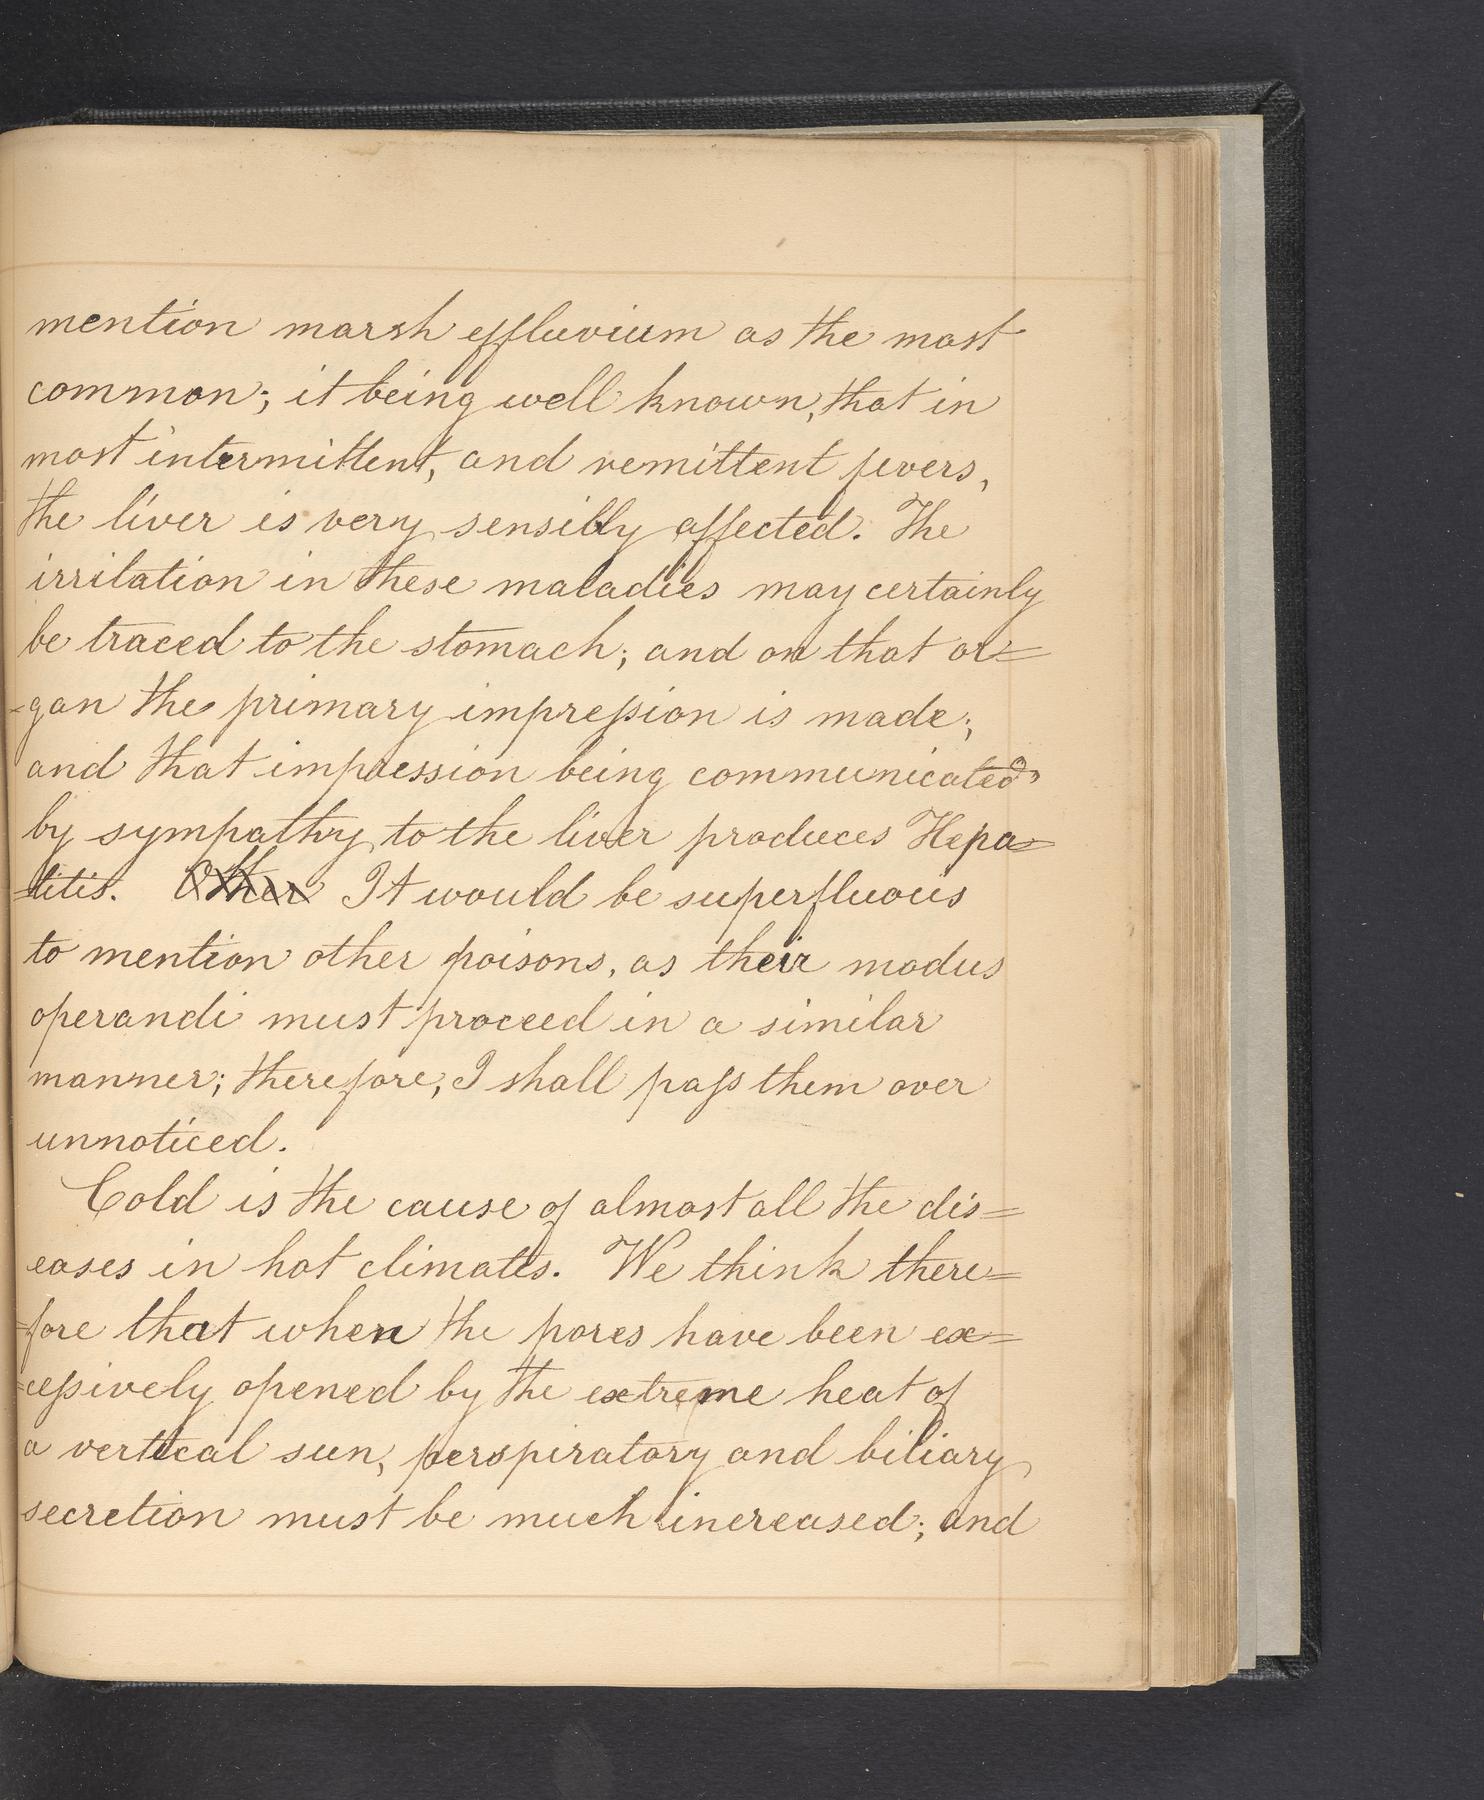 mention marsh effluvium as the most
common; it being well known, that in
most intermittent, and remittent fevers,
the liver is very sensibly affected. The
irritation in these maladies may certainly
be traced to the stomach; and on that or=
-gan the primary impression is made;
and that impression being communicated,
by sympathy, to the liver produces Hepa=
=titis. Other It would be superfluous
to mention other poisons, as their modus
operandi must proceed in a similar
manner; therefore, I shall pass them over
unnoticed.
Cold is the cause of almost all the dis=
eases in hot climates. We think there=
=fore that when the pores have been ex=
=cessively opened by the extreme heat of
a vertical sun, perspiratory and biliary
secretion must be much increased; and